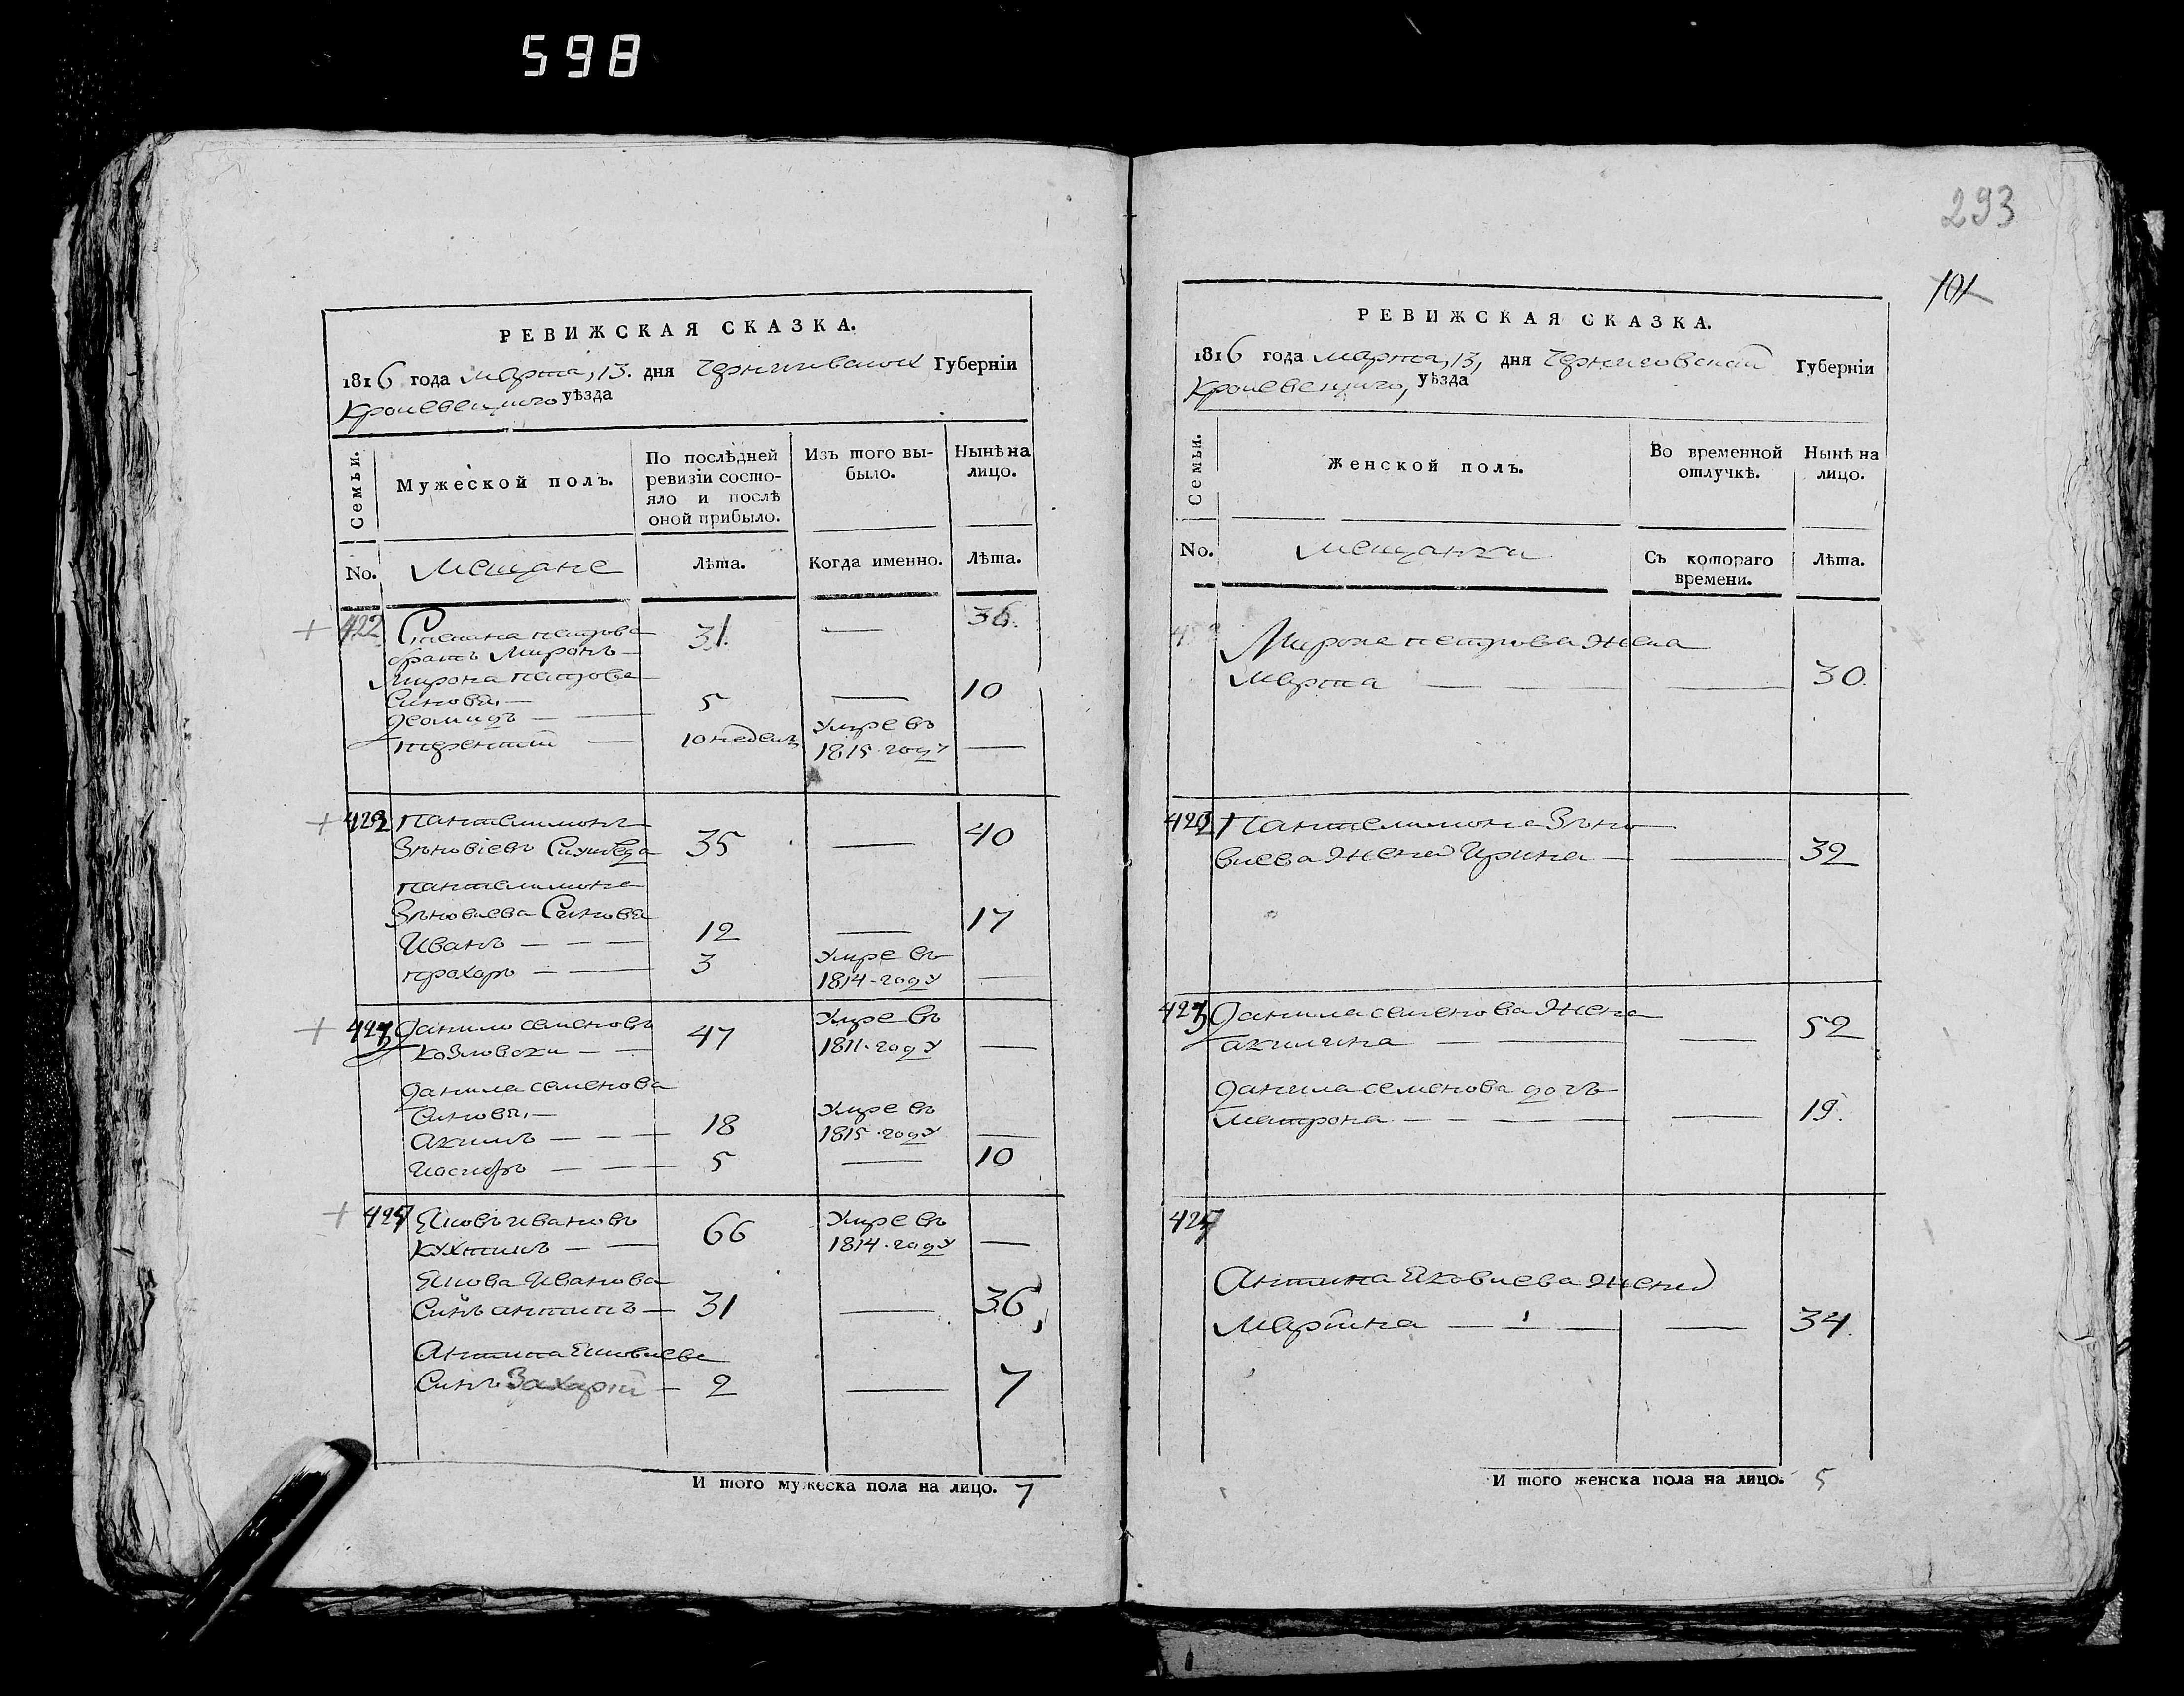 598
РЕВИЖСКАЯ СКАЗКА.
1816 года марта, 13. дня Черниговской Губерніи
Кролевецкого уѣзда
Семьи.
Мужеской полъ.
По послѣдней
ревизіи состо-
яло и послѣ
оной прибыло.
Изъ того вы-
было.
Нынѣ на
лицо.
No.
Мещане
Лѣта.
Когда именно.
Лѣта.
422 Степана петрова
братъ Миронъ 31. — 36.
Мирона петрова
Синовя,
Деомидъ 5 — 10
терентий 10 недель Умре въ 1815 году —
422 Пантелимонъ
Зѣновіевъ 35 — 40
пантелимона
Зѣновиева Синовя
Иванъ — — — 12 — 17
прохоръ — — 3 Умре въ 1814 году —
423 Данило семеновъ
Козловски — — 47 Умре въ 1811 году —
Данила семенова
Синовя, —
Акимъ — — — 18 Умре въ 1815 году —
Иосифъ — — — 5 — 10
424 Яковъ ивановъ
Кухтинъ — — 66 Умре въ 1814 году —
Якова Иванова
Синъ антипъ — 31 — 36
Антипа Яковлева
Синъ Захарій — 2 — 7
И того мужеска пола на лицо. 7
293
101
РЕВИЖСКАЯ СКАЗКА.
1816 года марта, 13, дня Черниговской Губерніи
Кролевецкого, уѣзда
Семьи.
Женской полъ.
Во временной
отлучкѣ.
Нынѣ на
лицо.
No.
мещанки
Съ котораго
времени.
Лѣта.
Мирона петрова жена
Марта — — — — — 30.
422 Пантелимона Зѣно
виева жена Ирина — — 32
423 Данила семенова жена
акилина — — — 52
Данила семенова дочъ
матрона — — — — — 19.
424
Антипа Яковлева жена
Марина — — — — 34.
И того женска пола на лицо. 5